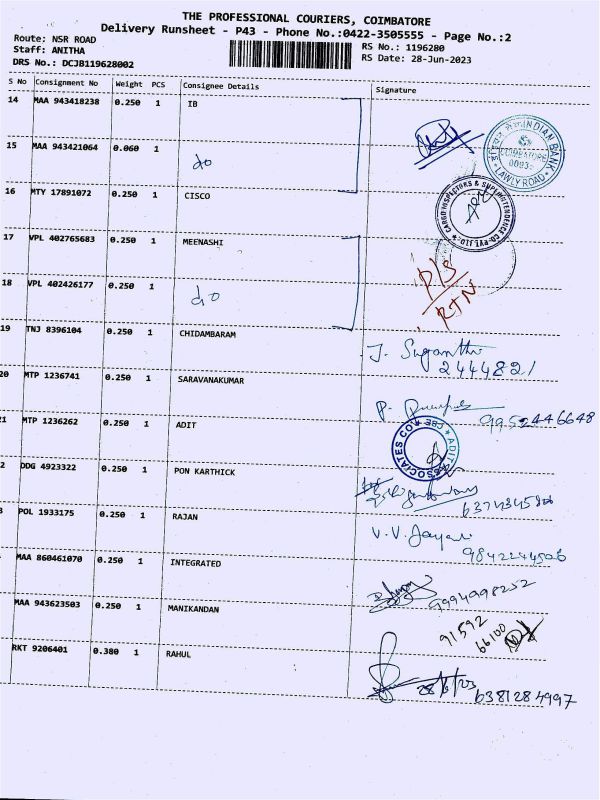 THE PROFESSIONAL COURIERS, COIMBATORE
Delivery Runsheet - P43 - Phone No.:0422-3505555 - Page No.:2
Route: NSR ROAD
Staff: ANITHA
DRS No.: DCJB119628002
RS No.: 1196280
RS Date: 28-Jun-2023
S No Consignment No Weight PCS Consignee Details Signature
14 MAA 943418238 0.250 1 IB
15 MAA 943421064 0.060 1 do
INDIAN BANK
COIMBATORE
LAWLY ROAD
16 MTY 17891072 0.250 1 CISCO
CARGO INSPECTORS & SUPERINTENDENCE CO. PVT. LTD.
17 VPL 402765683 0.250 1 MEENASHI
18 VPL 402426177 0.250 1 do
D/S
RTN
19 TNJ 8396104 0.250 1 CHIDAMBARAM
J. Suganthi
2444821
20 MTP 1236741 0.250 1 SARAVANAKUMAR
9952446648
21 MTP 1236262 0.250 1 ADIT
ADIT ASSOCIATES
2 DDG 4923322 0.250 1 PON KARTHICK
POL 1933175 0.250 1 RAJAN
V.V. Jayan
9842244506
MAA 860461070 0.250 1 INTEGRATED
9994998252
MAA 943623503 0.250 1 MANIKANDAN
91592
66100
RKT 9206401 0.380 1 RAHUL
28/6/23 6381284997